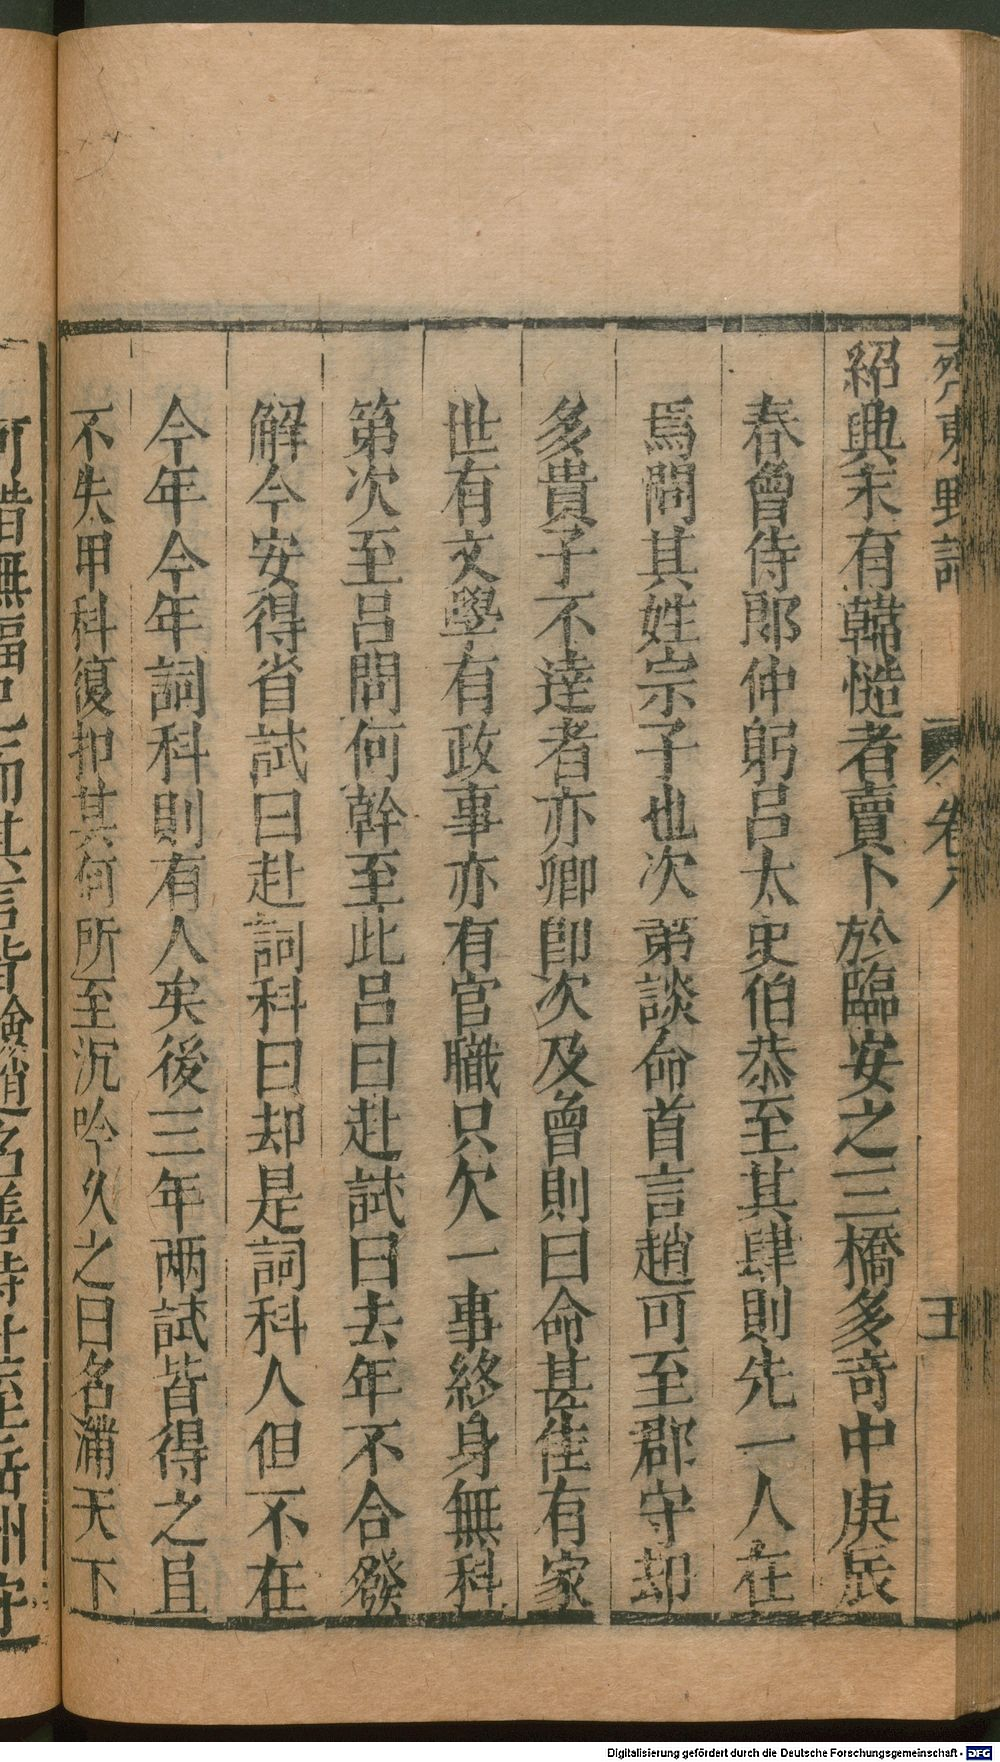 齊東野語 卷八 五
紹興末有韓慥者賣卜於臨安之三橋多竒中庚辰
春曾侍郎仲躬呂太史伯恭至其肆則先一人在
焉問其姓宗子也次第談命首言趙可至郡守却
多貴子不達者亦卿郎次及曾則曰命甚佳有家
世有文學有政事亦有官職只欠一事終身無科
第次至呂問何幹至此呂曰赴試曰去年不合發
解今安得省試曰赴詞科曰却是詞科人但不在
今年今年詞科則有人矣後三年兩試皆得之且
不失甲科復扣其何所至沉吟久之曰名滿天下
可惜無福已而其言皆驗趙名善待仕至岳州守
Digitalisierung gefördert durch die Deutsche Forschungsgemeinschaft - DFG